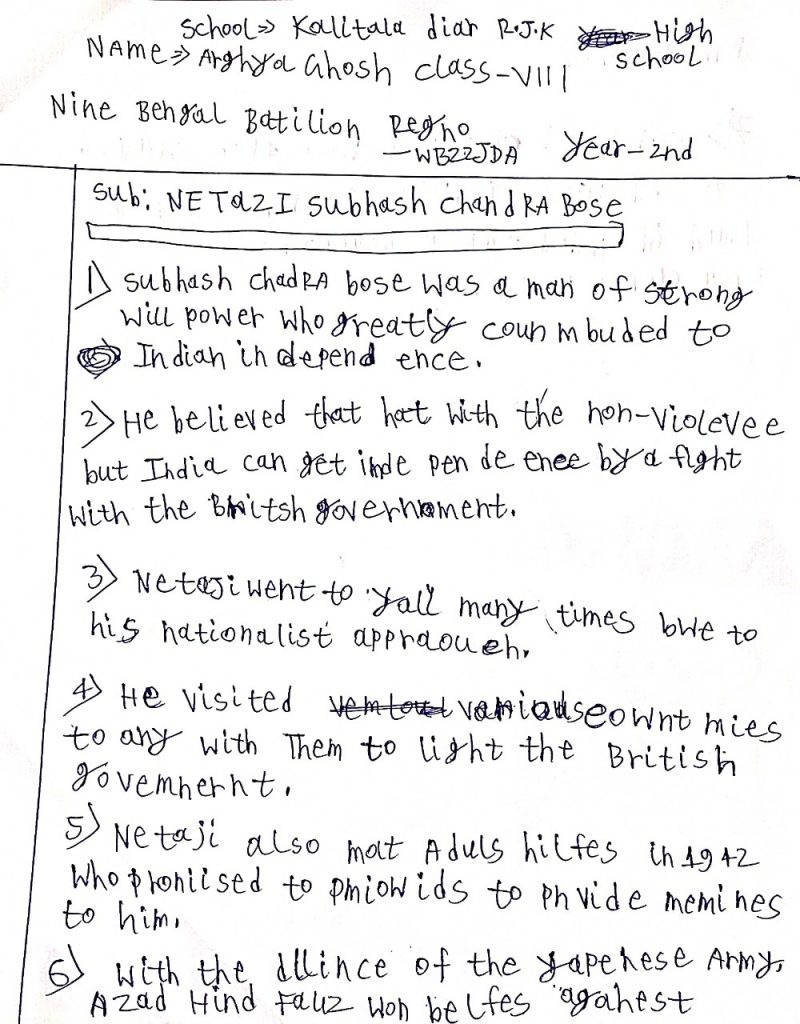 School⇒ Kalitala diar R.J.K High
School
NAME⇒ Arghya Ghosh class-VIII
Nine Bengal Batilion Regno
—WB22JDA Year-2nd
Sub: NETAZI Subhash ChandRA Bose
1) Subhash chadRA bose was a man of strong
will power who greatly coun mbuded to
Indian in depend ence.
2) He believed that hat with the non-violevee
but India can get inde pen de enee by a fight
with the Bnitsh government.
3) Netaji went to yail many times bwe to
his nationalist appraoueh.
4) He visited vaniouseownt mies
to any with Them to light the British
govemhernt.
5) Netaji also mat Aduls hilfes in 1942
who proniised to pmiowids to phvide memines
to him.
6) with the dllince of the yapehese Army,
Azad Hind Fauz won belfes agahest